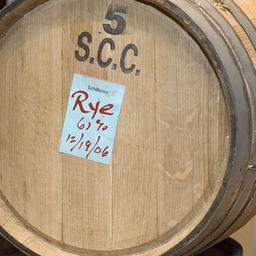 5
S.C.C.
Rye
12/19/06